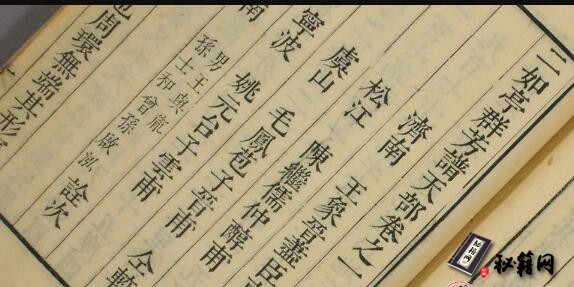 二如亭群芳譜天部卷之一
濟南 王象晉藎臣
松江 陳繼儒仲醇甫
虞山 毛鳳苞子晉甫 仝較
寧波 姚元台子雲甫
南 男王與
孫士和曾孫啟泓 詮次
也周環無端其形
秘籍网
秘籍网